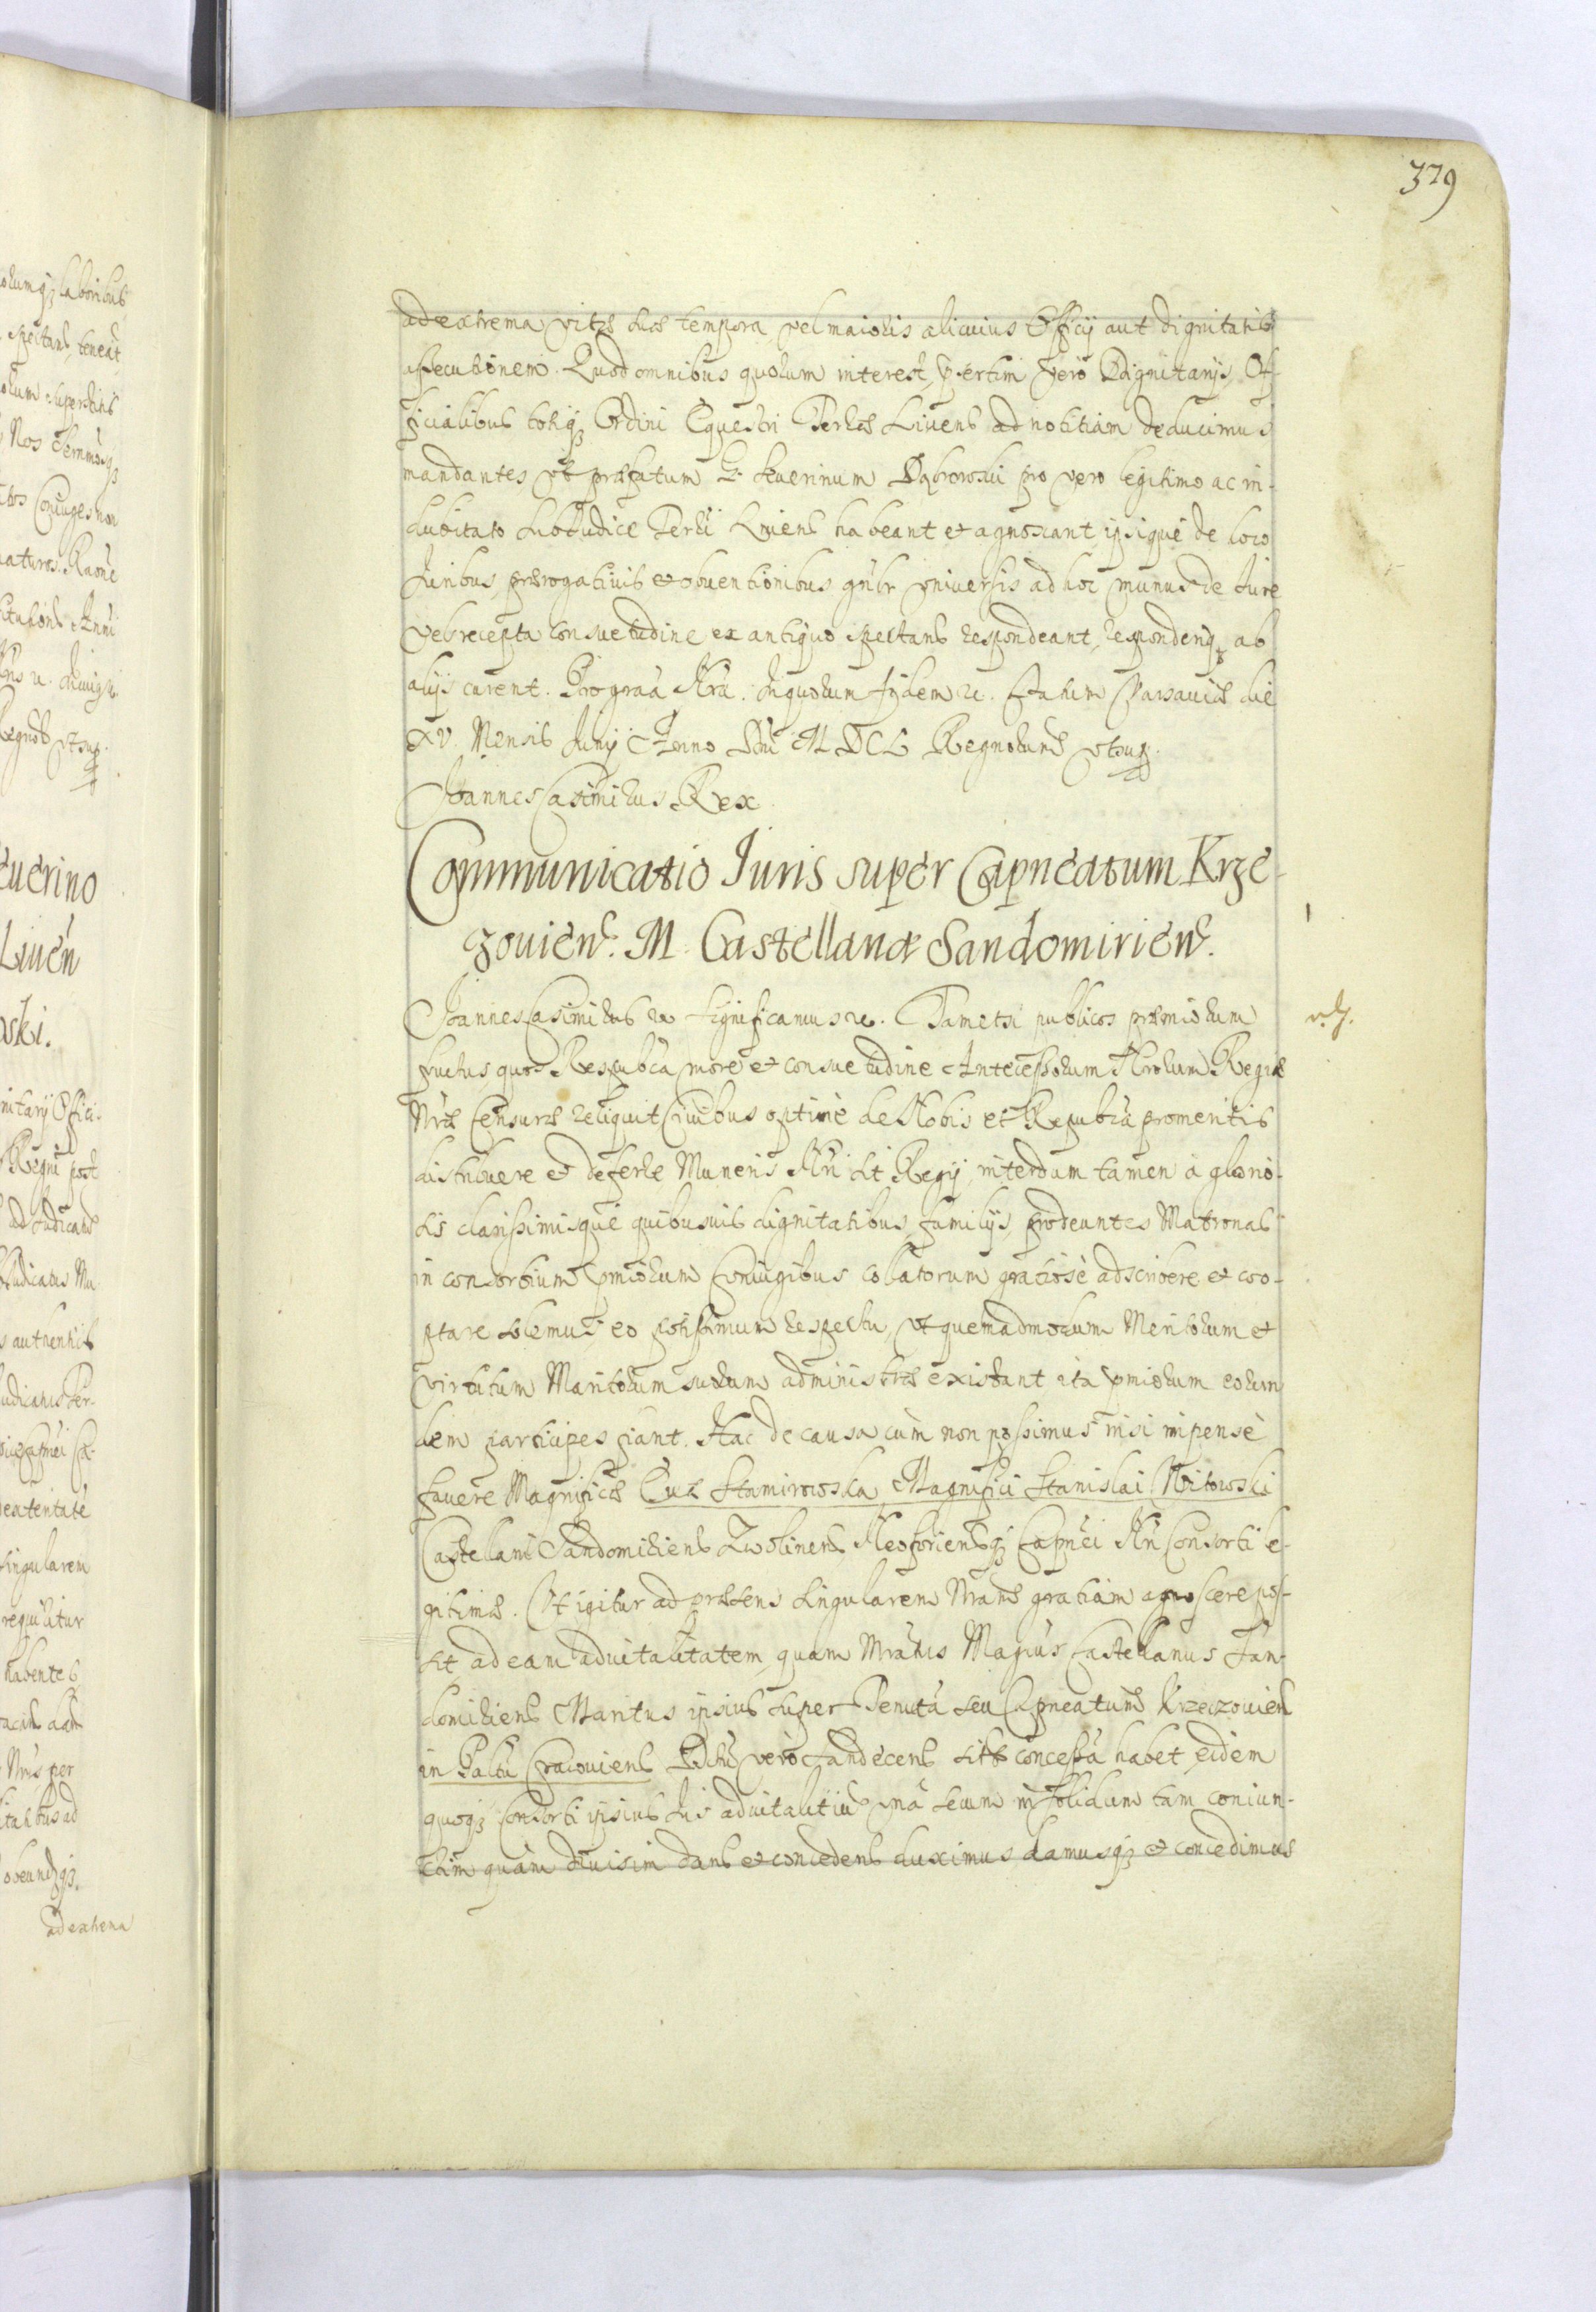 379
ad extrema vitæ suæ tempora, vel maioris alicuius Officij aut dignitatis
assecutionem. Quod omnibus quorum interest, psertim vero Dignitarijs, Of-
ficialibus totiq3 Ordini Equestri Terræ Livens ad notitiam deducimus
mandantes, vt præfatum G. Seuerinum Dąbrowski pro vero legitimo ac in-
dubitato SubJudice Terrī Livens habeant et agnoscant, ipsique de loco
Juribus, prærogativis et obuentionibus gnlr vniversis ad hoc munus de Jure
vel recepta consuetudine ex antiquo spectans respondeant, responderiq3 ab
alijs curent. Pro gratia Nra. In quorum fidem etc. Datum Varsaviæ die
XV. Mensis Junij Anno Dni M DCL Regnorum vt sup.
Joannes Casimirus Rex.
Communicatio Juris super Capneatum Krze-
zouiens. M. Castellanæ Sandomiriens.
Joannes Casimirus etc Significamus etc. Tametsi publicos præmiorum
fructus quos Respubca more et consuetudine Antecessorum Nrorum Regiæ
Nræ Censuræ reliquit Civibus optime de Nobis et Repubca promeritis
distribuere et deferre Muneris Nri sit Regij, interdum tamen à glorio-
sis clarissimisque quibusvis dignitatibus, familijs, prodeuntes Matronas
in consortium pmiorum Coniugibus collatorum gratiosè adscribere et coo-
ptare solemus, eo potissimum respectu, vt quemadmodum Meritorum et
virtutum Maritorum suorum administræ existant, ita pmiorum eorun
dem participes fiant. Hac de causa cùm non possimus nisi impensè
favere Magnificæ Evæ Stamirowska, Magnifici Stanislai Witowski
Castellani Sandomiriens Zwolinens Neoforiensq3 Capnei Nri Consorti le-
gitimæ. Vt igitur ad præsens singularem Nram gratiam agnoscere pos-
sit ad eam aduitalitatem, quam Mratus Magcus Castellanus San-
domiriens Maritus ipsius super Tenuta seu Capneatum Krzeczouiens
in Paltu Cracouiens Dctu vero Sandecens sibi concessa habet, eidem
quoq3 Consorti ipsius Jus aduitalitiu vna secum in solidum tam coniun-
ctim quam divisim dans et concedens duximus damusq3 et concedimus